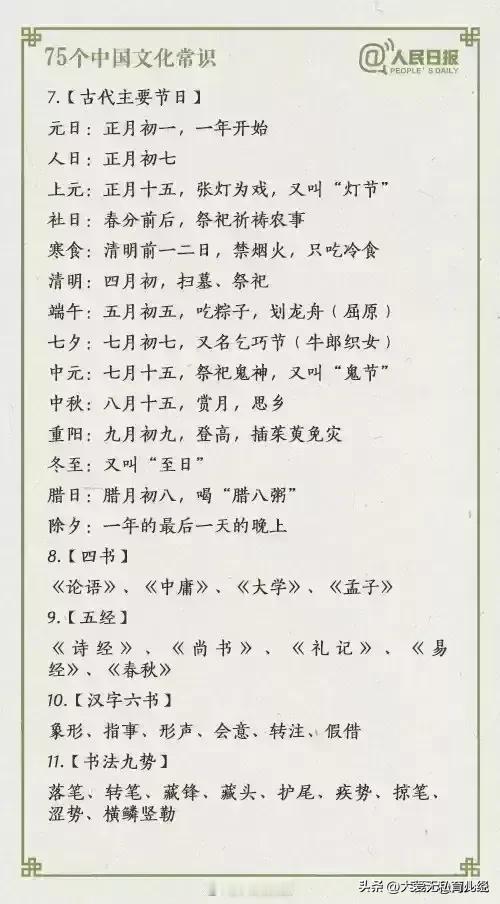 75个中国文化常识
@人民日报
PEOPLE'S DAILY
7.【古代主要节日】
元日：正月初一，一年开始
人日：正月初七
上元：正月十五，张灯为戏，又叫“灯节”
社日：春分前后，祭祀祈祷农事
寒食：清明前一二日，禁烟火，只吃冷食
清明：四月初，扫墓、祭祀
端午：五月初五，吃粽子，划龙舟（屈原）
七夕：七月初七，又名乞巧节（牛郎织女）
中元：七月十五，祭祀鬼神，又叫“鬼节”
中秋：八月十五，赏月，思乡
重阳：九月初九，登高，插茱萸免灾
冬至：又叫“至日”
腊日：腊月初八，喝“腊八粥”
除夕：一年的最后一天的晚上
8.【四书】
《论语》、《中庸》、《大学》、《孟子》
9.【五经】
《诗经》、《尚书》、《礼记》、《易
经》、《春秋》
10.【汉字六书】
象形、指事、形声、会意、转注、假借
11.【书法九势】
落笔、转笔、藏锋、藏头、护尾、疾势、掠笔、
涩势、横鳞竖勒
头条 @大爱无私育儿经